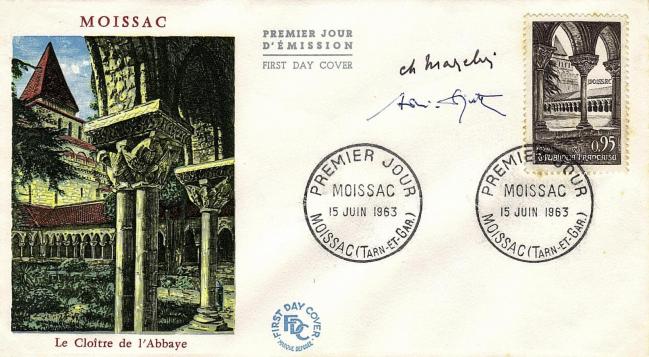 MOISSAC
Le Cloître de l'Abbaye
PREMIER JOUR
D'ÉMISSION
FIRST DAY COVER
MOISSAC
0,95
RÉPUBLIQUE FRANÇAISE
PREMIER JOUR
MOISSAC
15 JUIN 1963
MOISSAC (TARN-ET-GAR.)
PREMIER JOUR
MOISSAC
15 JUIN 1963
MOISSAC (TARN-ET-GAR.)
FIRST DAY COVER
FDC
MARQUE DÉPOSÉE